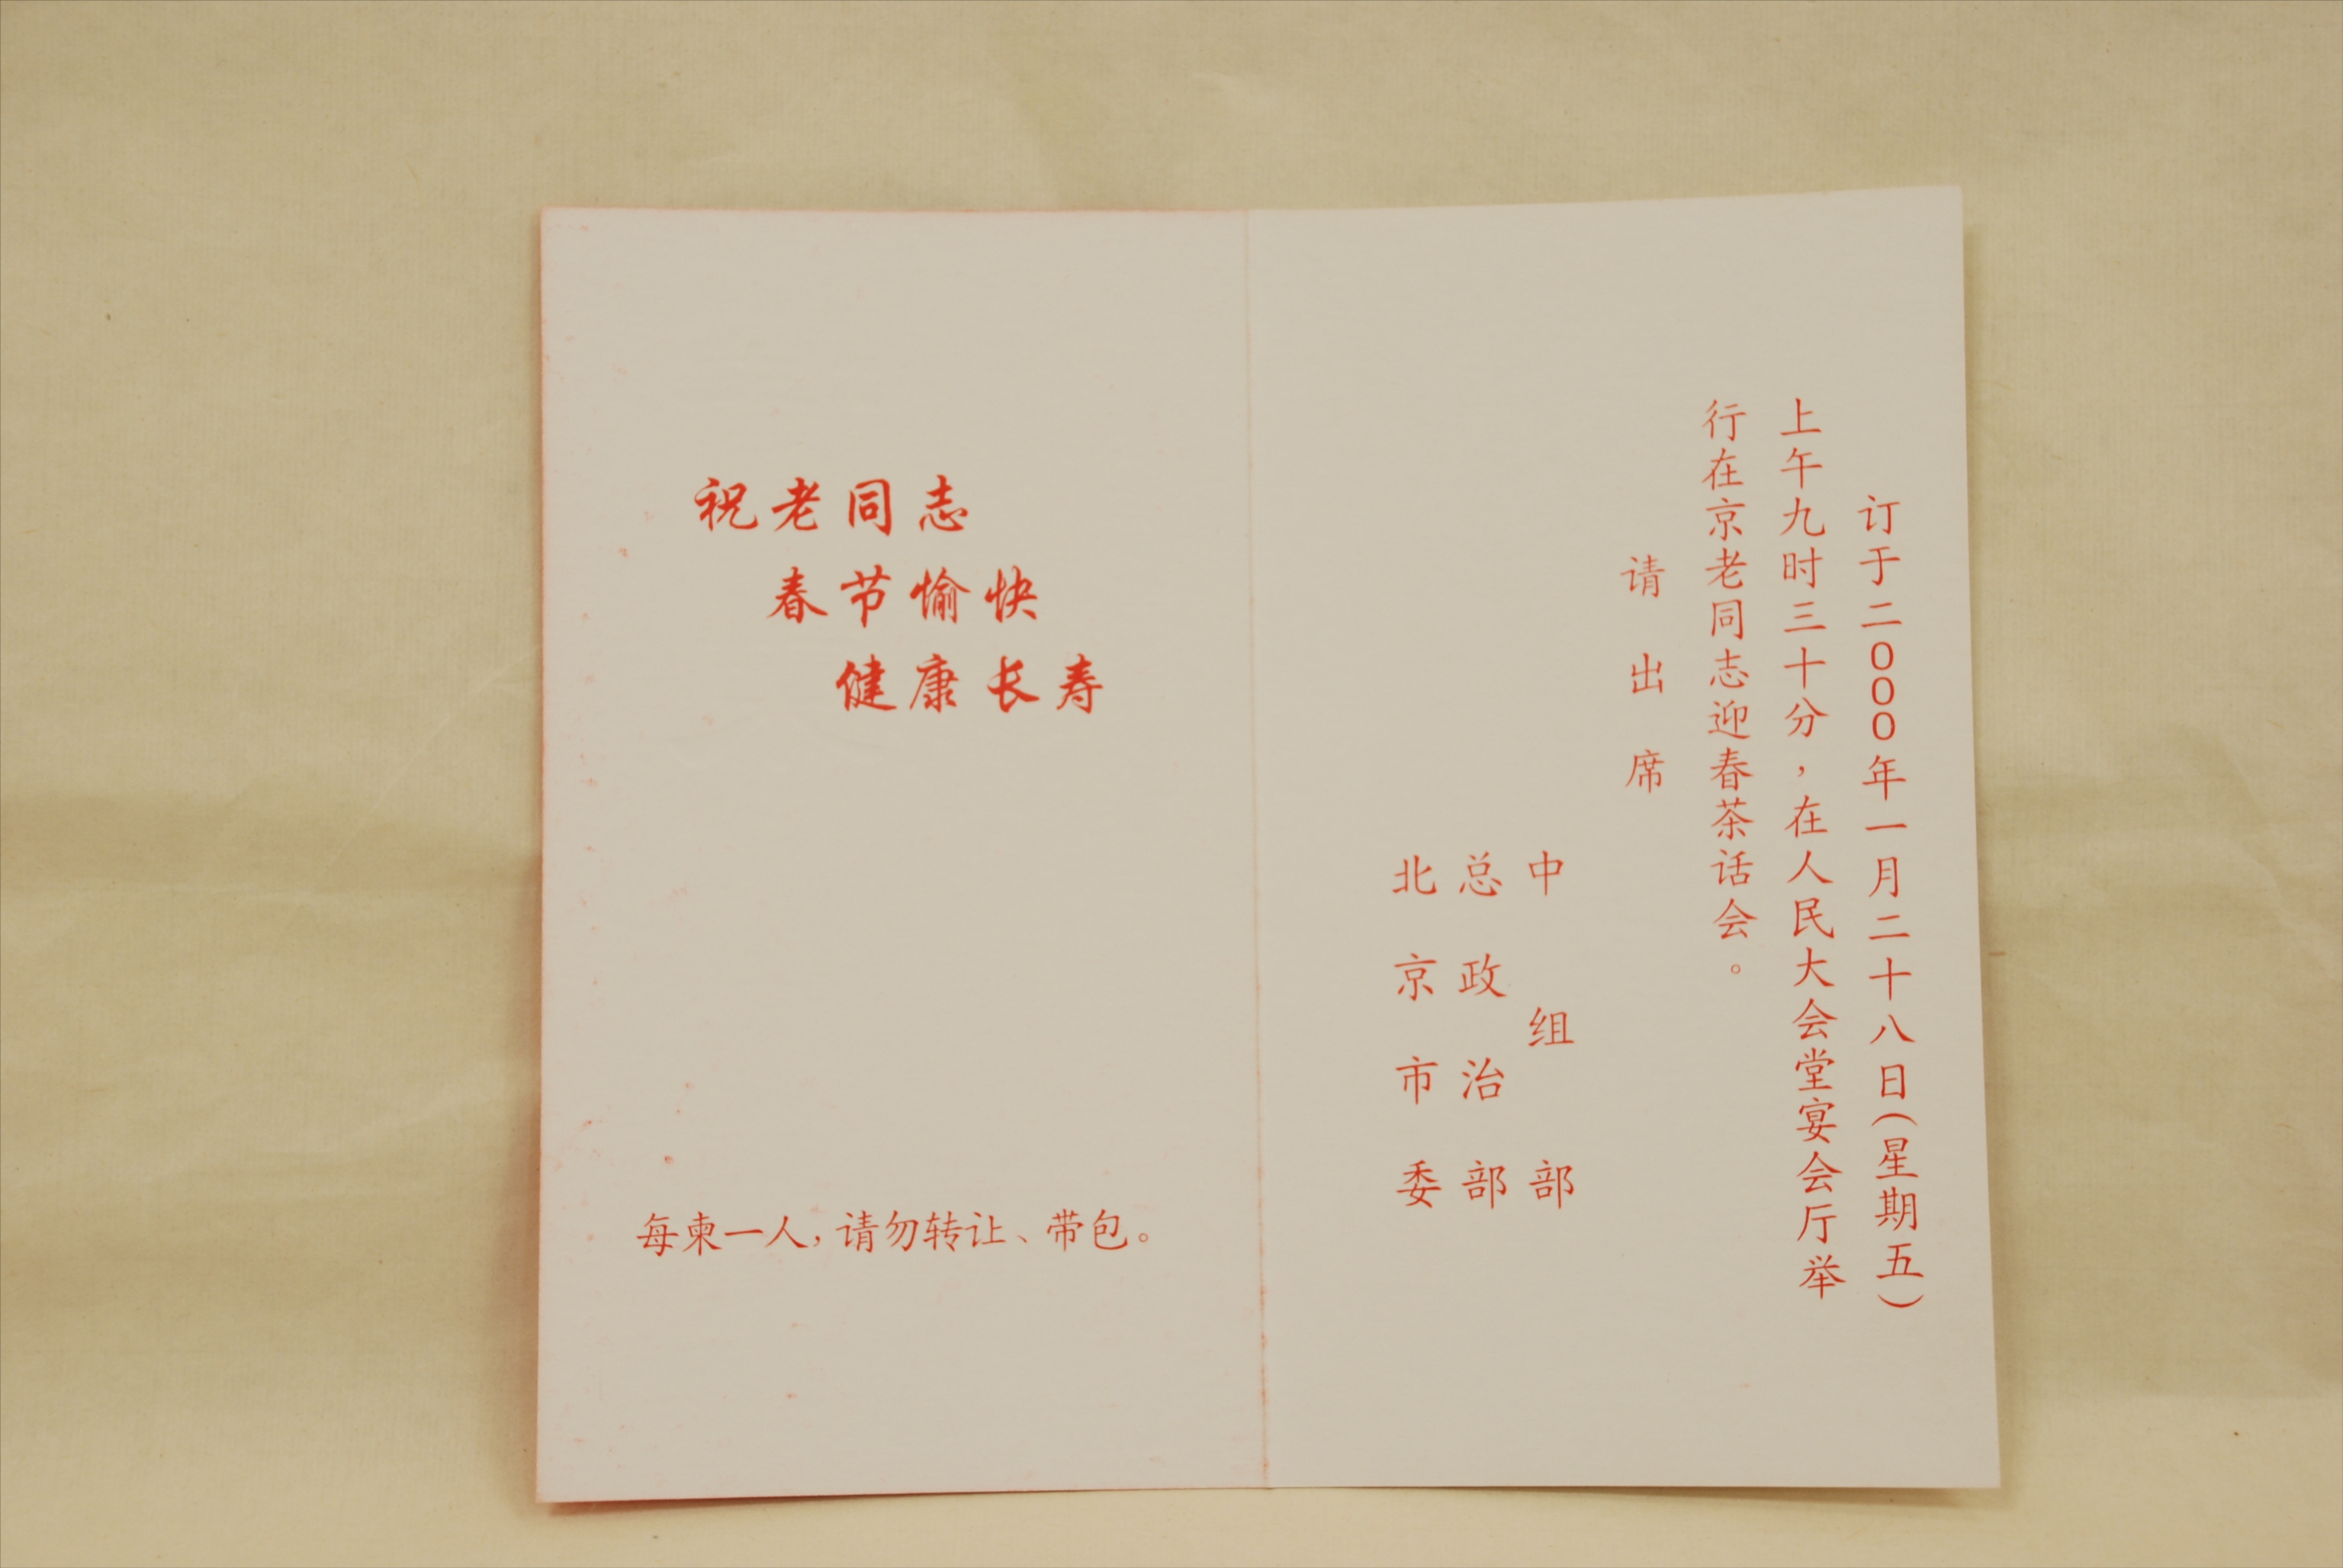 订于二000年一月二十八日(星期五)
上午九时三十分,在人民大会堂宴会厅举
行在京老同志迎春茶话会。
请出席
中组部
总政治部
北京市委
祝老同志
春节愉快
健康长寿
每柬一人,请勿转让、带包。